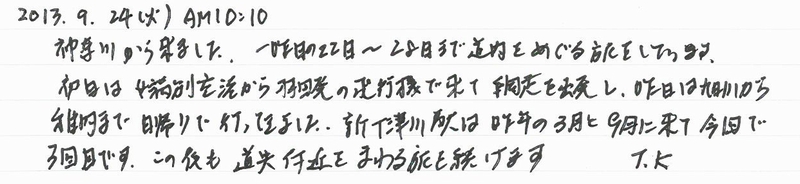 2013. 9. 24(火) AM10:10
神奈川から来ました。一昨日の22日〜28日まで道内をめぐる旅をしています。
初日は女満別空港から羽田発の飛行機で来て網走を出発し、昨日は旭川から
稚内まで日帰りで行ってきました。新十津川駅は昨年の3月と9月に来て今回で
3回目です。この後も道央付近をまわる旅を続けます T.K